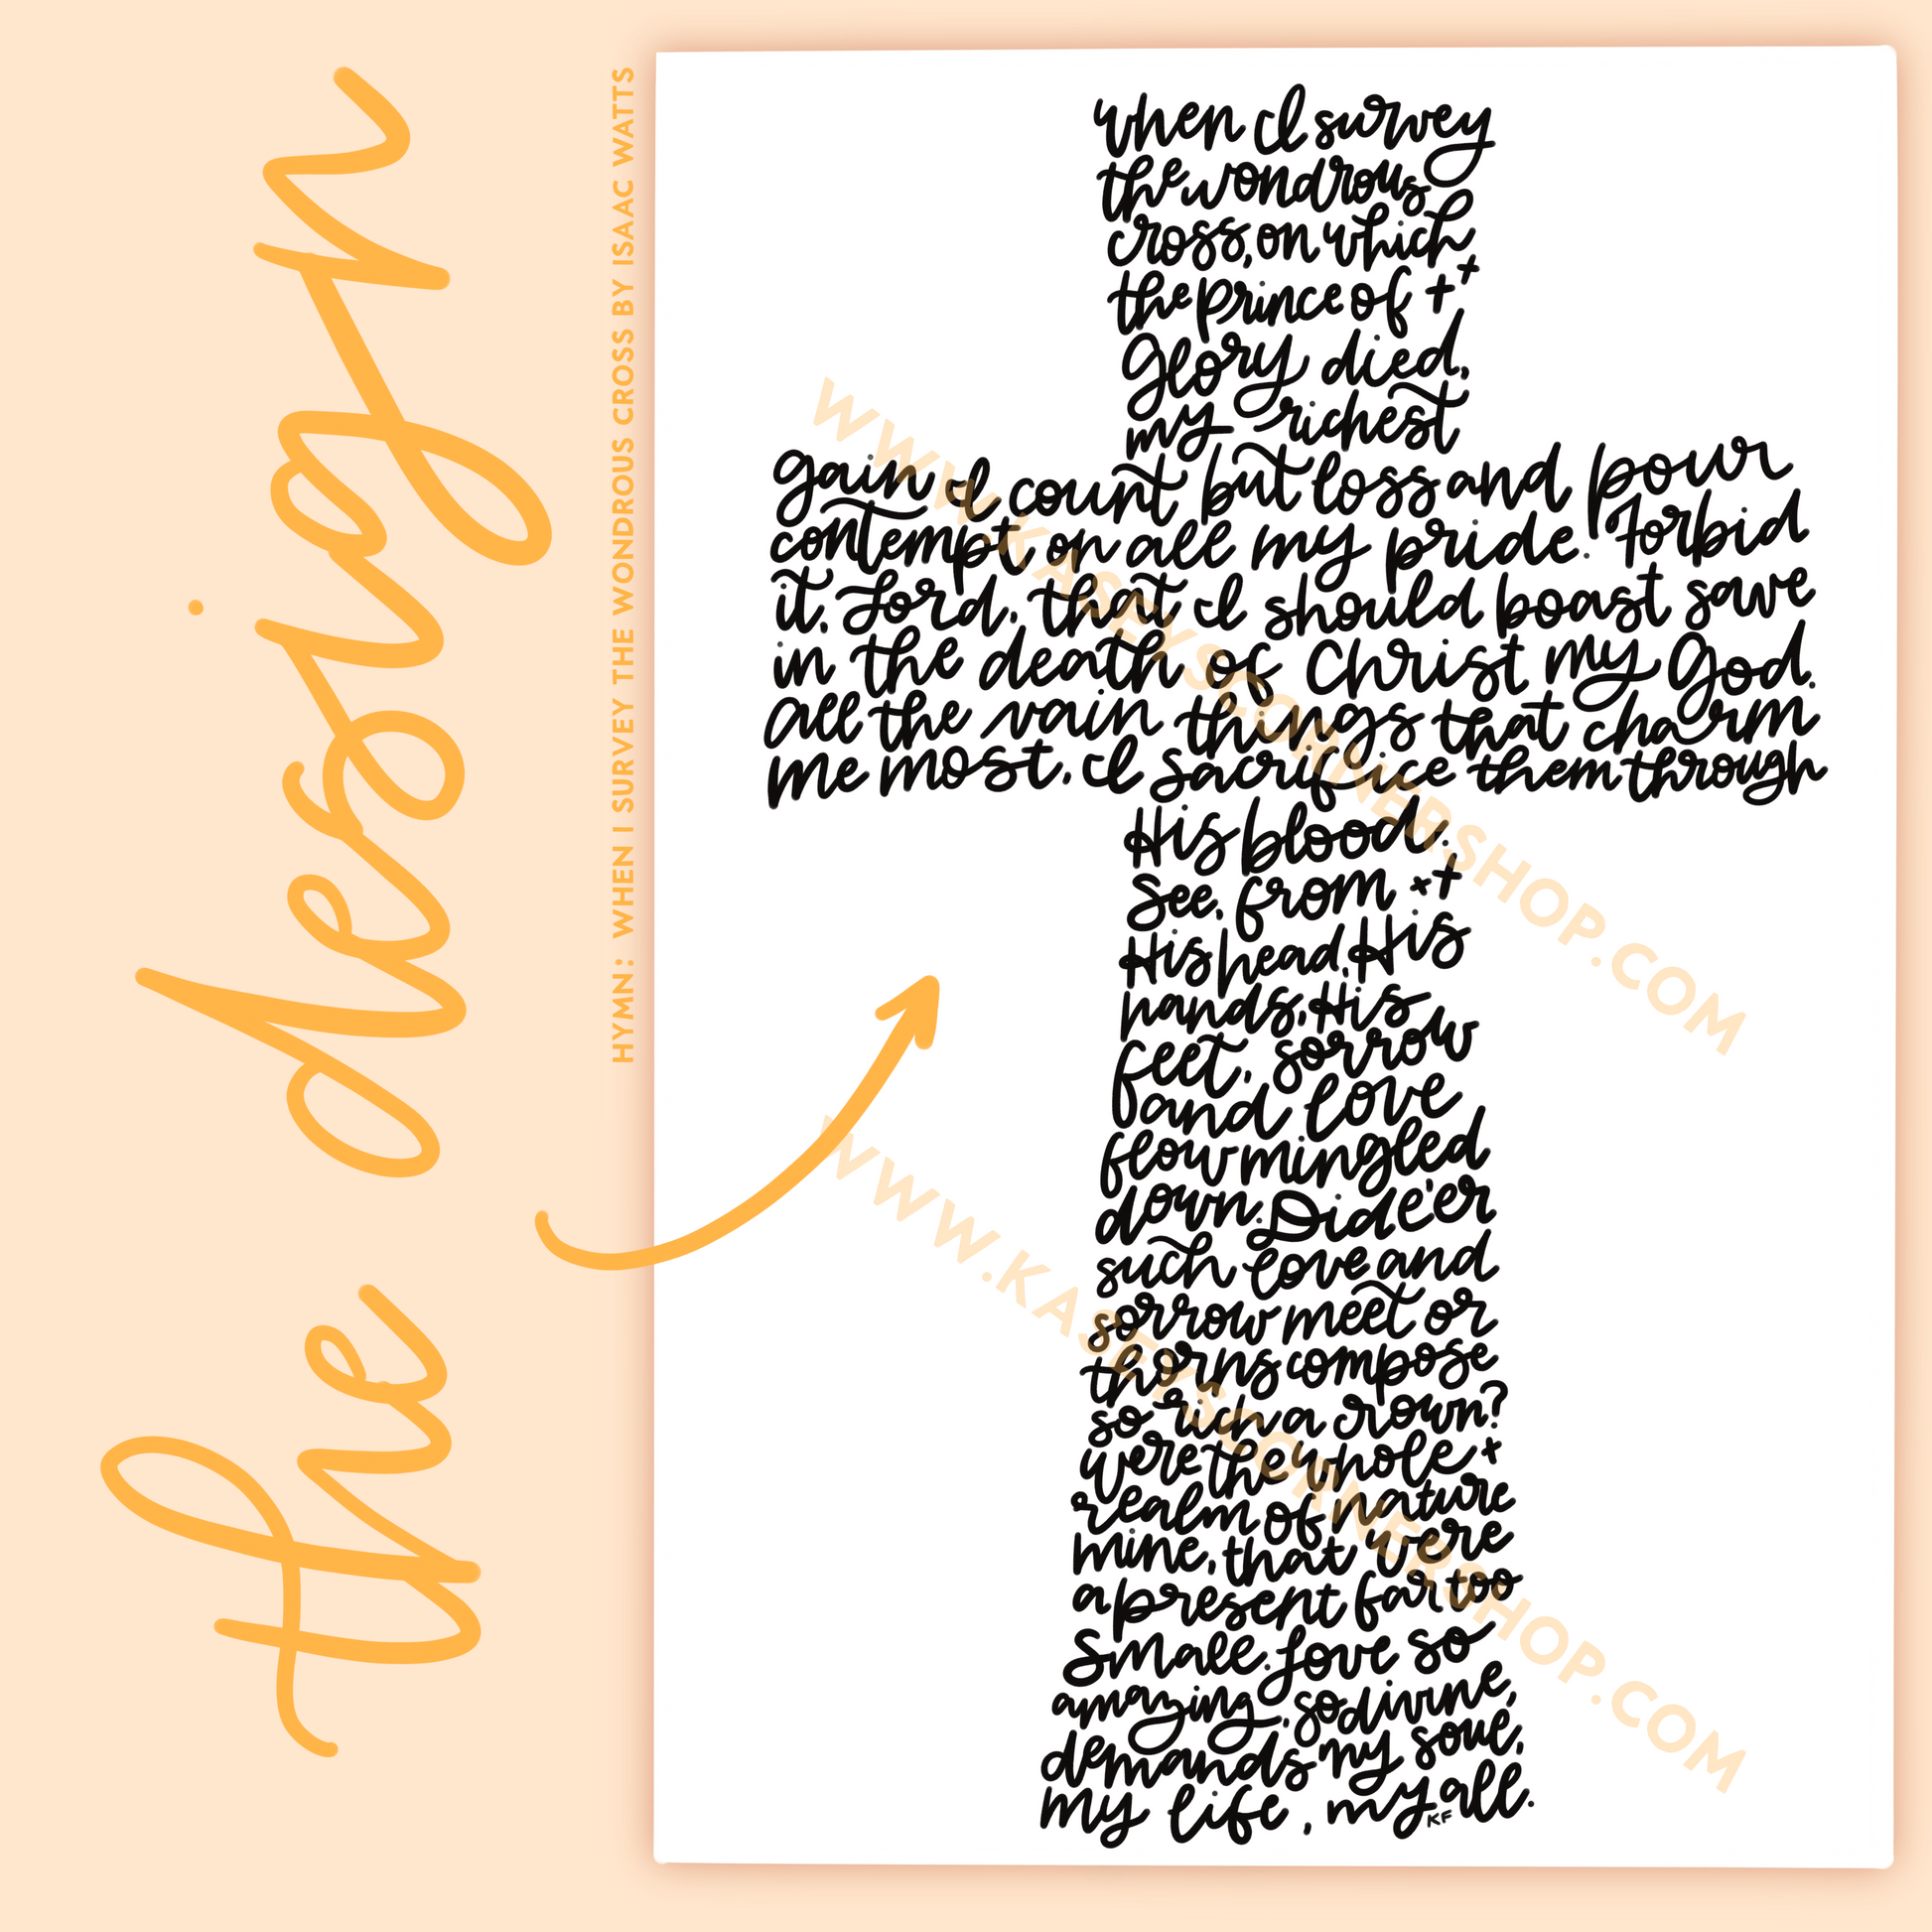 the design
HYMN: WHEN I SURVEY THE WONDROUS CROSS BY ISAAC WATTS
when I survey
the wondrous
cross, on which
the Prince of
Glory died,
my richest
gain I count but loss and pour
contempt on all my pride. Forbid
it, Lord, that I should boast save
in the death of Christ my God.
All the vain things that charm
me most, I sacrifice them through
His blood.
See, from
His head, His
hands, His
feet, sorrow
and love
flow mingled
down. Did e'er
such love and
sorrow meet or
thorns compose
so rich a crown?
were the whole
realm of nature
mine, that were
a present far too
small. Love so
amazing, so divine,
demands my soul,
my life, my all.
KF
WWW.KASEYSCORNERSHOP.COM
WWW.KASEYSCORNERSHOP.COM